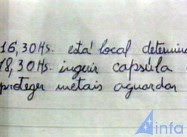 16,30 Hs. está local determin
18,30 Hs. ingerir capsula
proteger metais aguardar
Ainfo